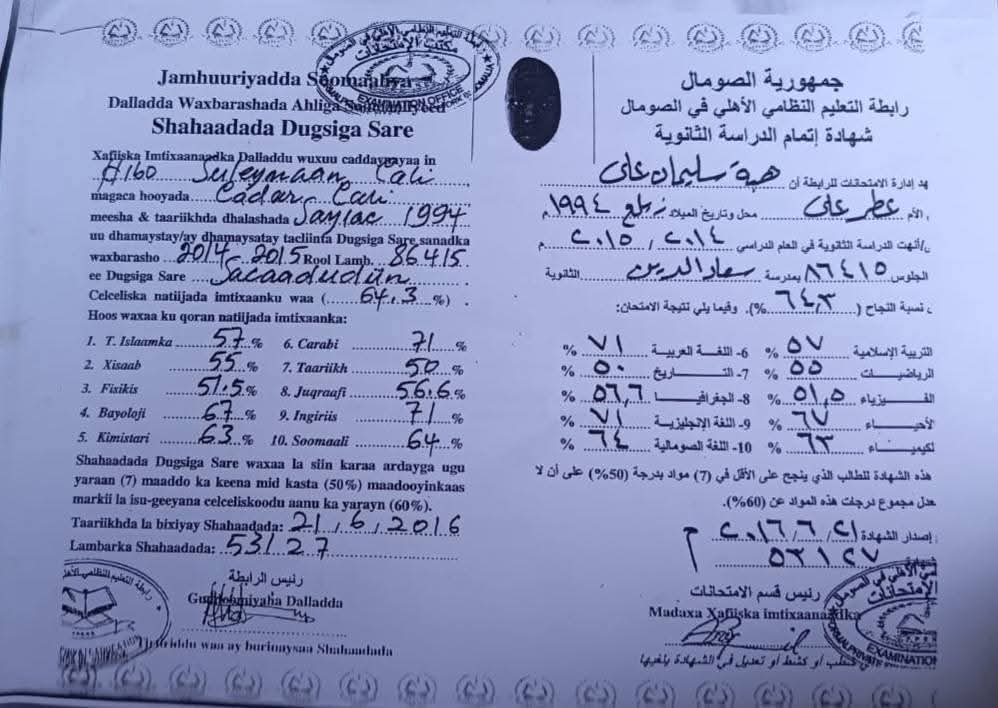 Jamhuuriyadda Soomaaliya
Dalladda Waxbarashada Ahliga
Shahaadada Dugsiga Sare
Xafiiska Imtixaanaadka Dalladdu wuxuu caddaynayaa in
Hibo Suleymaan Cali
magaca hooyada Cadar Cali
meesha & taariikhda dhalashada Saylac 1994
uu dhamaystay/ay dhamaysatay tacliinta Dugsiga Sare sanadka
waxbarasho 2014 2015 Rool Lamb. 86415
ee Dugsiga Sare Sacaadudiin
Celceliska natiijada imtixaanku waa (64.3%).
Hoos waxaa ku qoran natiijada imtixaanka:
1. T. Islaamka 57% 6. Carabi 71%
2. Xisaab 55% 7. Taariikh 50%
3. Fisikis 51.5% 8. Juqraafi 56.6%
4. Bayoloji 67% 9. Ingiriis 71%
5. Kimistari 63% 10. Soomaali 64%
Shahaadada Dugsiga Sare waxaa la siin karaa ardayga ugu
yaraan (7) maaddo ka keena mid kasta (50%) maadooyinkaas
markii la isu-geeyana celceliskoodu aanu ka yarayn (60%).
Taariikhda la bixiyay Shahaadada: 21, 6, 2016
Lambarka Shahaadada: 53127
رئيس الرابطة
Guddoomiyaha Dalladda
waa ay burinaysaa Shahaadada
مكتب الإمتحانات
EXAMINATION OFFICE
جمهورية الصومال
رابطة التعليم النظامي الأهلي في الصومال
شهادة إتمام الدراسة الثانوية
هد إدارة الامتحانات للرابطة أن هبة سليمان على
الأم عطر على محل وتاريخ الميلاد زيلع ١٩٩٤م
/أنهت الدراسة الثانوية في العام الدراسي ٢٠١٤ / ٢٠١٥ م
الجلوس ٨٦٤١٥ بمدرسة سعاد الدين الثانوية
نسبة النجاح (٦٤,٣%). وفيما يلي نتيجة الامتحان:
التربية الإسلامية ٥٧ % 6- اللغة العربية ٧١ %
الرياضيات ٥٥ % 7- التاريخ ٥٠ %
الفيزياء ٥١,٥ % 8- الجغرافيا ٥٦,٦ %
لأحياء ٦٧ % 9- اللغة الإنجليزية ٧١ %
لكيمياء ٦٣ % 10- اللغة الصومالية ٦٤ %
هذه الشهادة للطالب الذي ينجح على الأقل في (7) مواد بدرجة (50%) على أن لا
عدل مجموع درجات هذه المواد عن (60%).
إصدار الشهادة ٢١/٦/٢٠١٦ م
٥٣١٢٧
رئيس قسم الامتحانات
Madaxa Xafiiska imtixaanaadka
أو كشط أو تعديل في الشهادة يلغيها
EXAMINATION